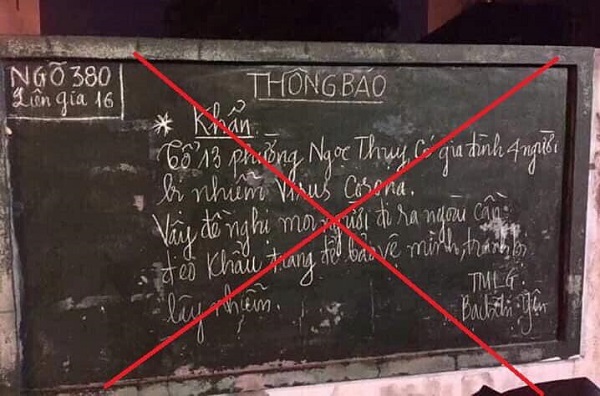 NGÕ 380
Liên gia 16
THÔNG BÁO
* Khẩn
Tổ 13 phường Ngọc Thụy, Có gia đình 4 người
bị nhiễm Virus Corona.
Vậy đề nghị mọi người đi ra ngoài cần
đeo Khẩu trang để bảo vệ mình, tránh bị
lây nhiễm.
TMLG
Yên